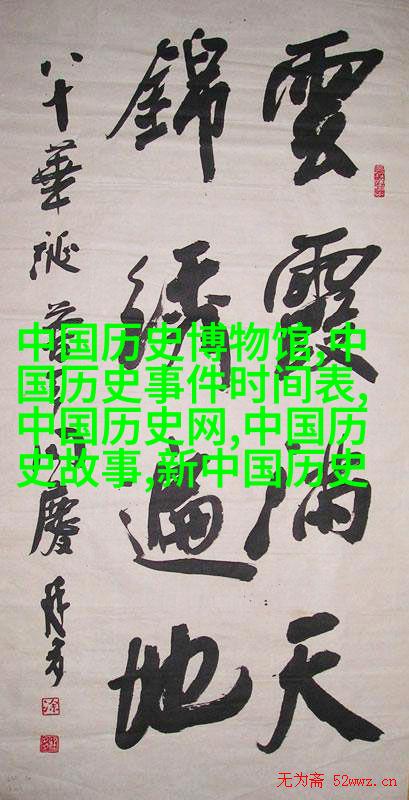 雲霞滿天
錦綉遍地
八十華誕
慶
中国历史博物馆,中
国历史事件时间表,
中国历史网,中国历
史故事,新中国历史
无为斋 52wwz.cn